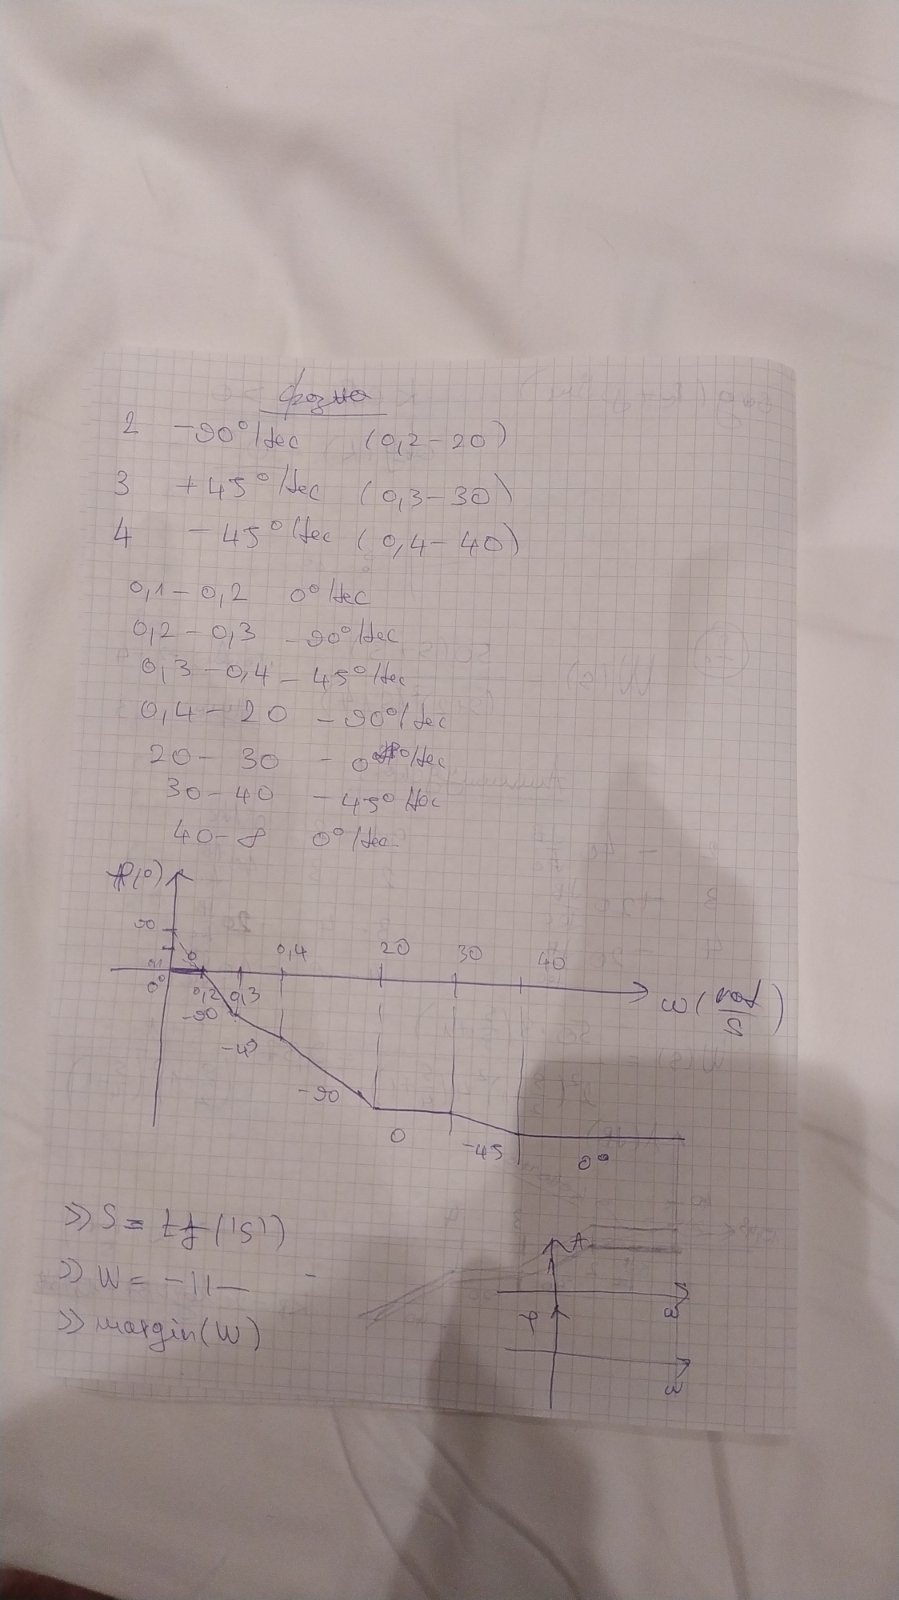 фазно
2 -90°/dec (0,2-20)
3 +45°/dec (0,3-30)
4 -45°/dec (0,4-40)
0,1-0,2 0°/dec
0,2-0,3 -90°/dec
0,3-0,4 -45°/dec
0,4-20 -90°/dec
20-30 - 0°/dec
30-40 -45°/dec
40-8 0°/dec
φ(°)
90
0,4 20 30 40
0,1
0°
0,2 0,3
ω(rad/s)
-90
-45
-90
0
-45
0°
>> S = tf('S')
>> W = -11-
>> margin(W)
A
ω
φ
ω